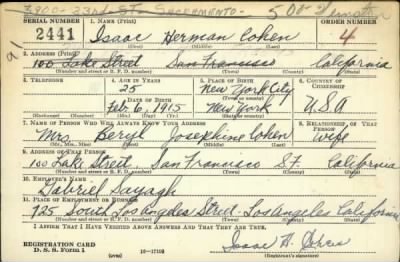 SERIAL NUMBER
1. NAME (Print)
ORDER NUMBER
2441
Isaac Herman Cohen
4
(First) (Middle) (Last)
2. ADDRESS (Print)
100 Lake Street San Francisco California
(Number and street or R. F. D. number) (Town) (County) (State)
3. TELEPHONE
4. AGE IN YEARS
25
5. PLACE OF BIRTH
New York City
6. COUNTRY OF CITIZENSHIP
DATE OF BIRTH
Feb 6, 1915
New York
U.S.A
(Mo.) (Day) (Yr.)
7. NAME OF PERSON WHO WILL ALWAYS KNOW YOUR ADDRESS
8. RELATIONSHIP OF THAT PERSON
Mrs. Beryl Josephine Cohen
Wife
(Mr., Mrs., Miss) (First) (Middle) (Last)
9. ADDRESS OF THAT PERSON
100 Lake Street San Francisco S.F. California
(Number and street or R. F. D. number) (Town) (County) (State)
10. EMPLOYER'S NAME
Gabriel Sayagh
11. PLACE OF EMPLOYMENT OR BUSINESS
725 South Los Angeles Street Los Angeles California
(Number and street or R. F. D. number) (Town) (County) (State)
I AFFIRM THAT I HAVE VERIFIED ABOVE ANSWERS AND THAT THEY ARE TRUE.
REGISTRATION CARD
D. S. S. Form 1
(over)
Isaac H. Cohen
(Registrant's signature)